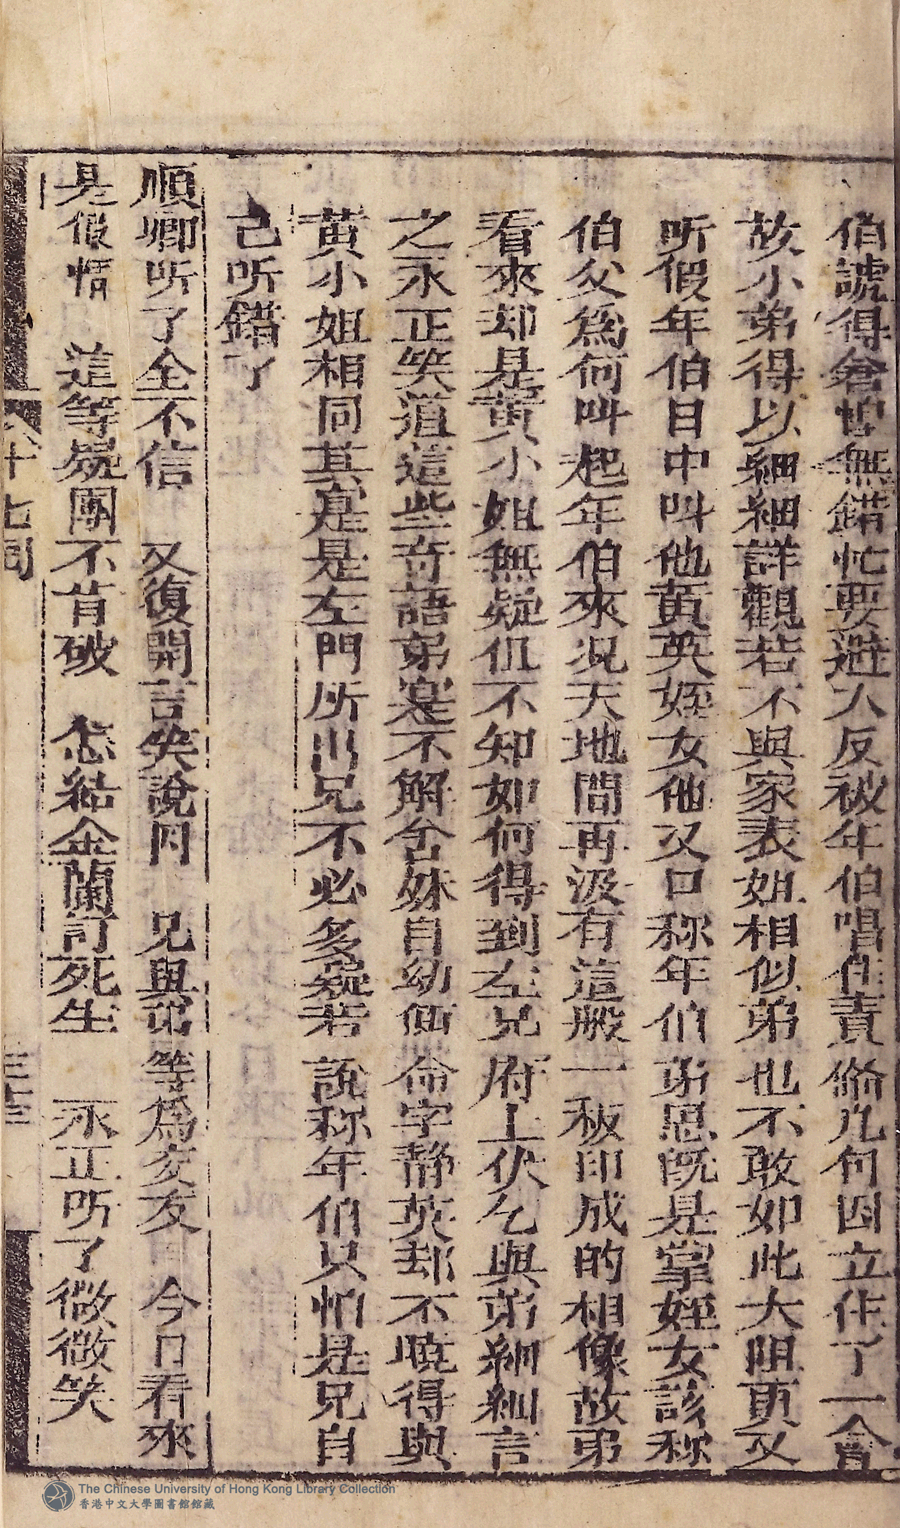 伯諕得倉惶無錯忙要避入反被年伯唱住責偹几句因立住了一會
故小弟得以細細詳觀若不與家表姐相似弟也不敢如此大阻更又
听假年伯日中叫他黄英姪女他又口称年伯弟思既是掌姪女該称
伯父為何叫起年伯來况天地間再汲有這般一板印成的相像故弟
看來却是黄小姐無疑但不知如何得到左兄府上伏乞與弟細細言
之永正笑道這些奇語弟寔不解舍妹自幼命字靜英却不曉得與
黄小姐相同其寔是左門所出兄不必多疑若說称年伯只怕是兄自
己听錯了
順卿听了全不信 又復開言笑說因 兄與弟等為交友 今日看來
是假情 這等疑團不肯破 怎結金蘭訂死生 永正听了微微笑
八十七回
三十三
The Chinese University of Hong Kong Library Collection
香港中文大學圖書館館藏